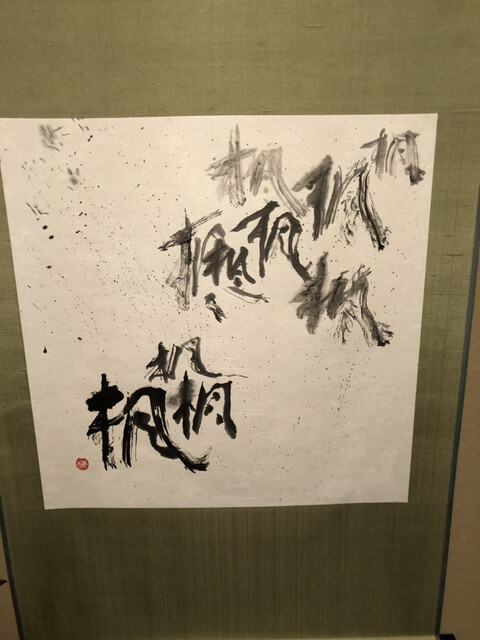 楓
楓
楓
楓
楓
楓
楓
楓
楓